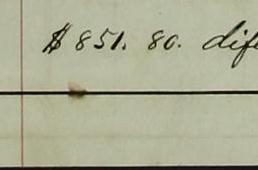 $851. 80. dife